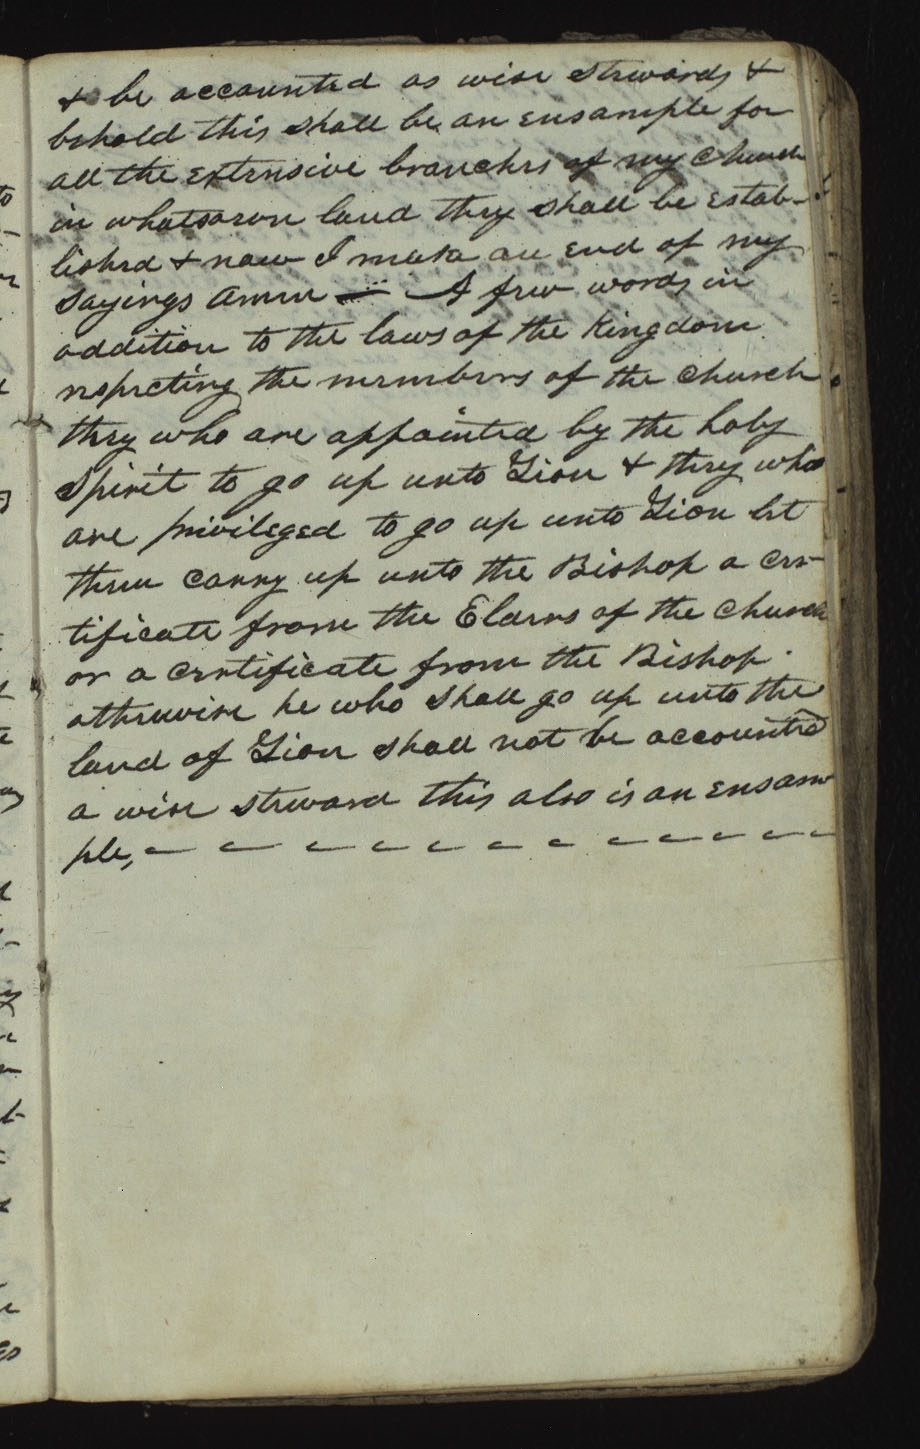 & be accounted as wise stewards &
behold this shall be an ensample for
all the extensive branches of my church
in whatsoever land they shall be estab-
lished & now I make an end of my
sayings Amen — A few words in
addition to the laws of the Kingdom
respecting the members of the church
they who are appointed by the holy
spirit to go up unto Zion & they who
are privileged to go up unto Zion let
them carry up unto the Bishop a cer-
tificate from the Elders of the church
or a certificate from the Bishop
otherwise he who shall go up unto the
land of Zion shall not be accounted
a wise steward this also is an ensam
ple,